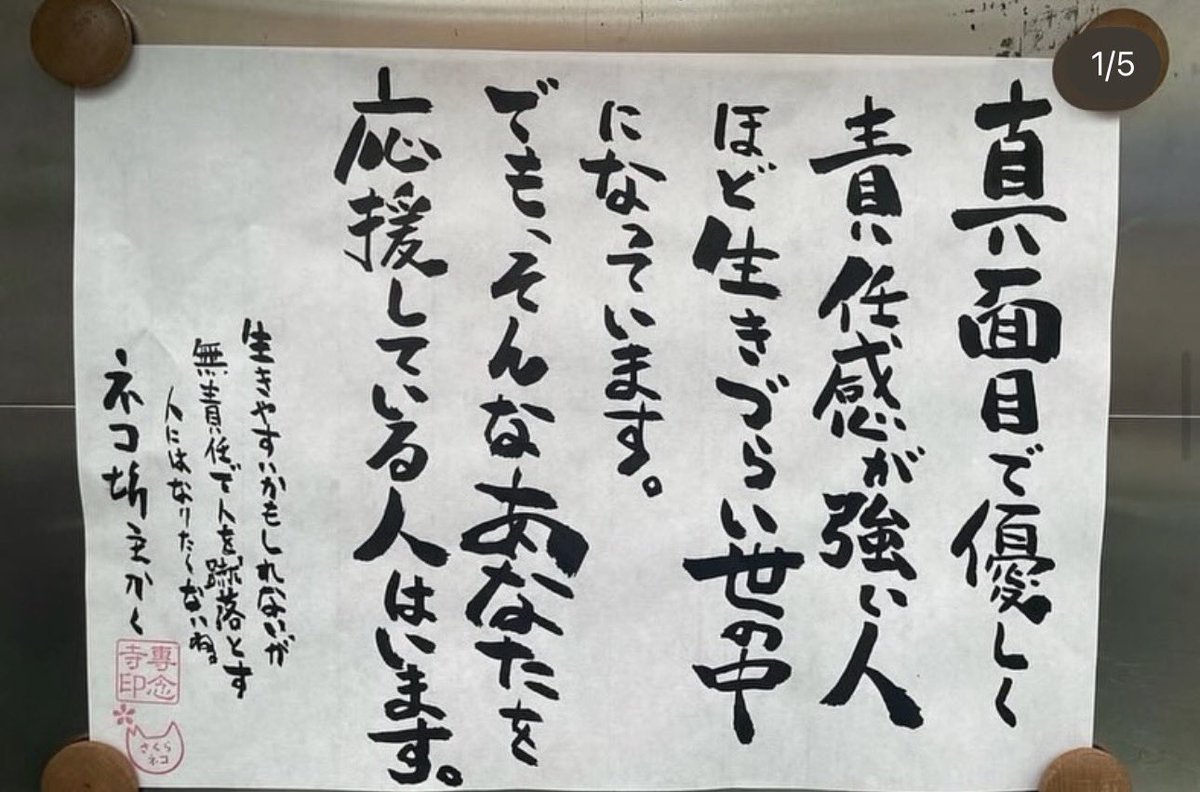 真面目で優しく
責任感が強い人
ほど生きづらい世の中
になっています。
でも、そんなあなたを
応援している人はいます。
生きやすいかもしれないが
無責任で人を蹴落とす
人にはなりたくないね。
ネコ坊主かく
専念
寺印
さくら
ネコ
1/5